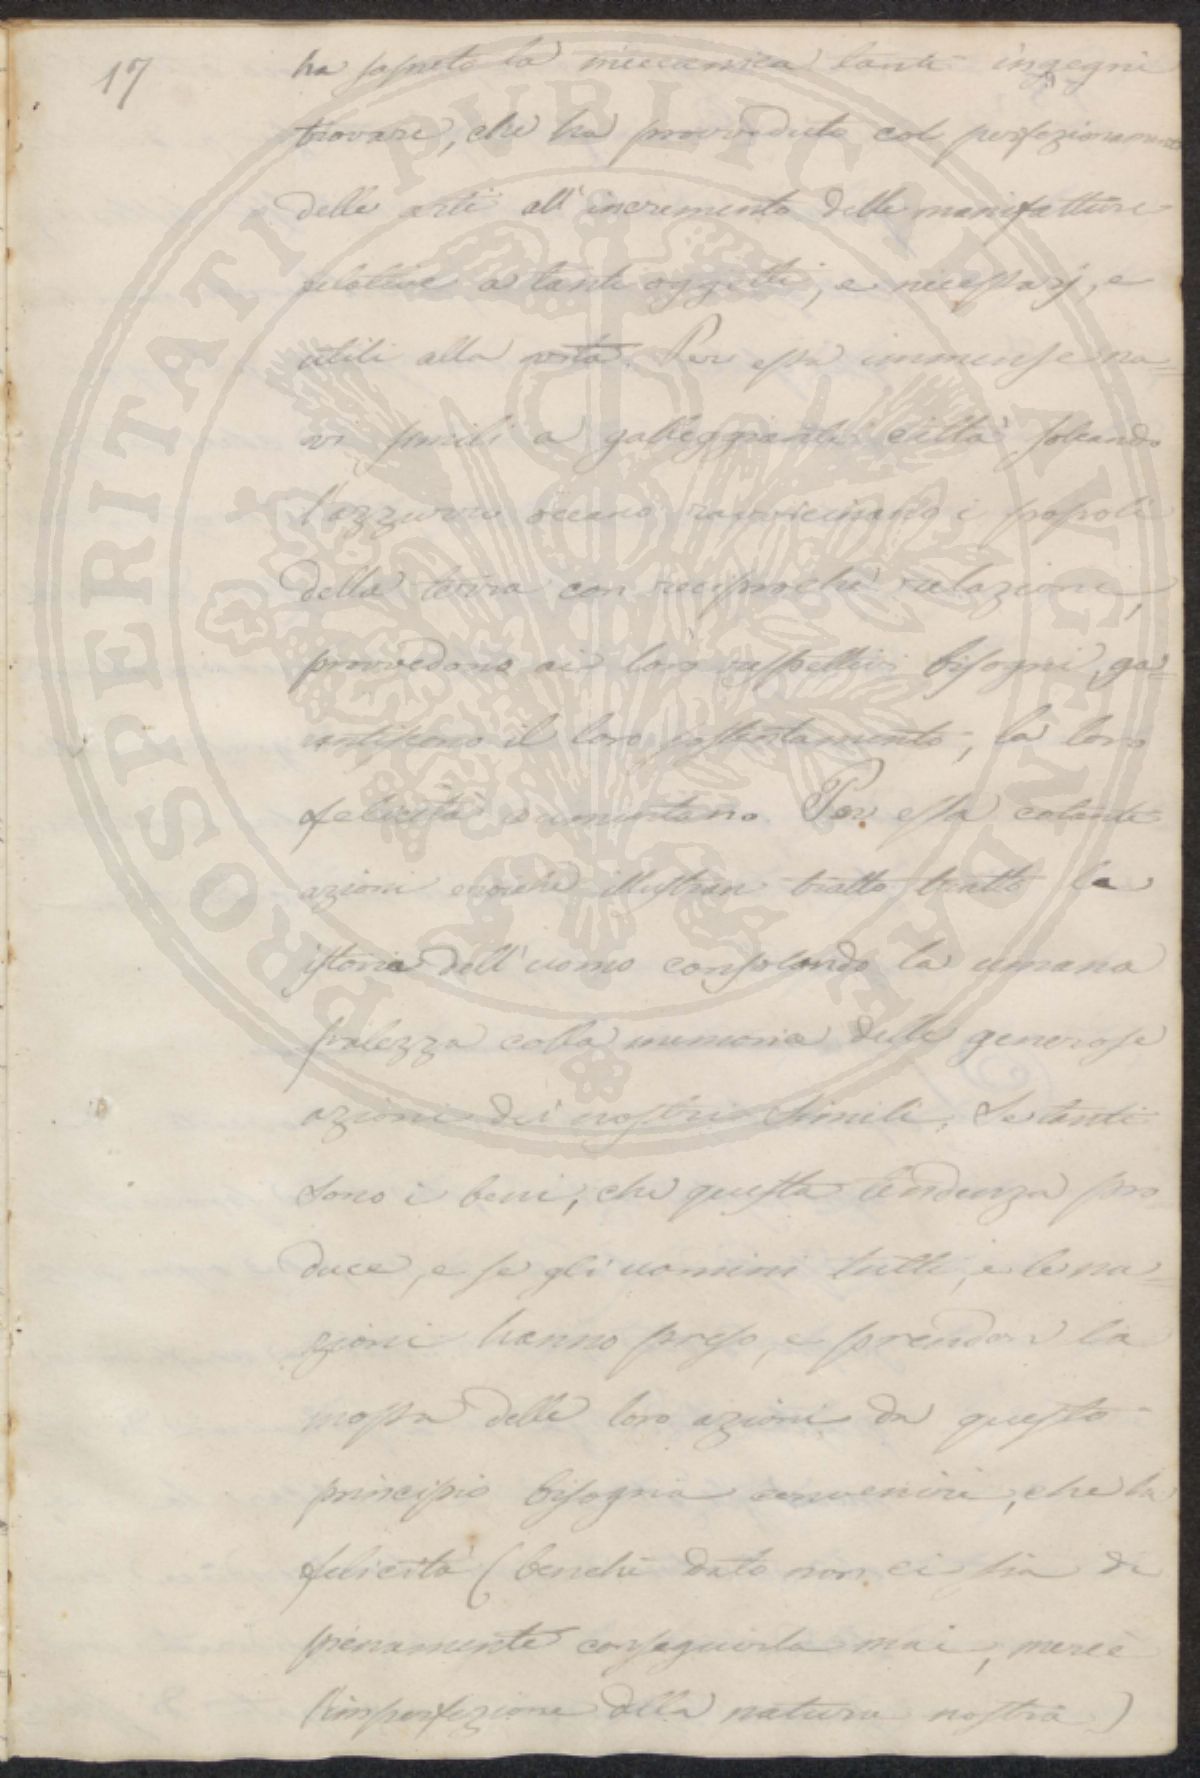 17
ha saputo la meccanica tanti ingegni
trovare, che ha provveduto col perfezionamento
delle arti all'incremento delle manifatture
relative a tanti oggetti, e necessarj, e
utili alla vita. Per essa immense na=
vi simili a galleggianti città solcando
l'azzurro oceano ravvicinano i popoli
della terra con reciproche relazioni,
provvedono ai loro rispettivi bisogni, ga=
rantiscono il loro sostentamento, la loro
felicità aumentano. Per essa cotante
azioni eroiche illustran tratto tratto la
istoria dell'uomo consolando la umana
fralezza colla memoria delle generose
azioni dei nostri simili. Se tanti
sono i beni, che questa tendenza pro
duce, e se gli uomini tutti, e le na=
zioni hanno preso, e prendon la
mossa delle loro azioni da questo
principio bisogna convenire, che la
felicità (benchè dato non ci sia di
pienamente conseguirla mai, mercè
l'imperfezione della natura nostra)
PROSPERITATI PUBLICAE AVGENDAE